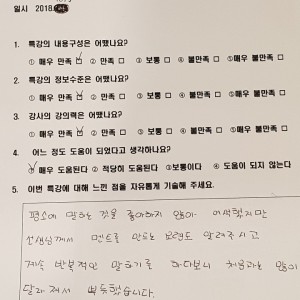 일시 2018.
1. 특강의 내용구성은 어땠나요?
① 매우 만족 □ ② 만족 □ ③ 보통 □ ④ 불만족 □ ⑤매우 불만족 □
2. 특강의 정보수준은 어땠나요?
① 매우 만족 □ ② 만족 □ ③ 보통 □ ④ 불만족 □ ⑤매우 불만족 □
3. 강사의 강의력은 어땠나요?
① 매우 만족 □ ② 만족 □ ③ 보통 □ ④ 불만족 □ ⑤매우 불만족 □
4. 어느 정도 도움이 되었다고 생각하나요?
① 매우 도움된다 ② 적당히 도움된다 ③보통이다 ④ 도움이 되지 않는다
5. 이번 특강에 대해 느낀 점을 자유롭게 기술해 주세요.
평소에 말하는 것을 좋아하지 않아 어색했지만
선생님께서 멘트를 만드는 요령도 알려주시고
계속 반복적인 말하기를 하다보니 처음과는 많이
달라져서 뿌듯했습니다.